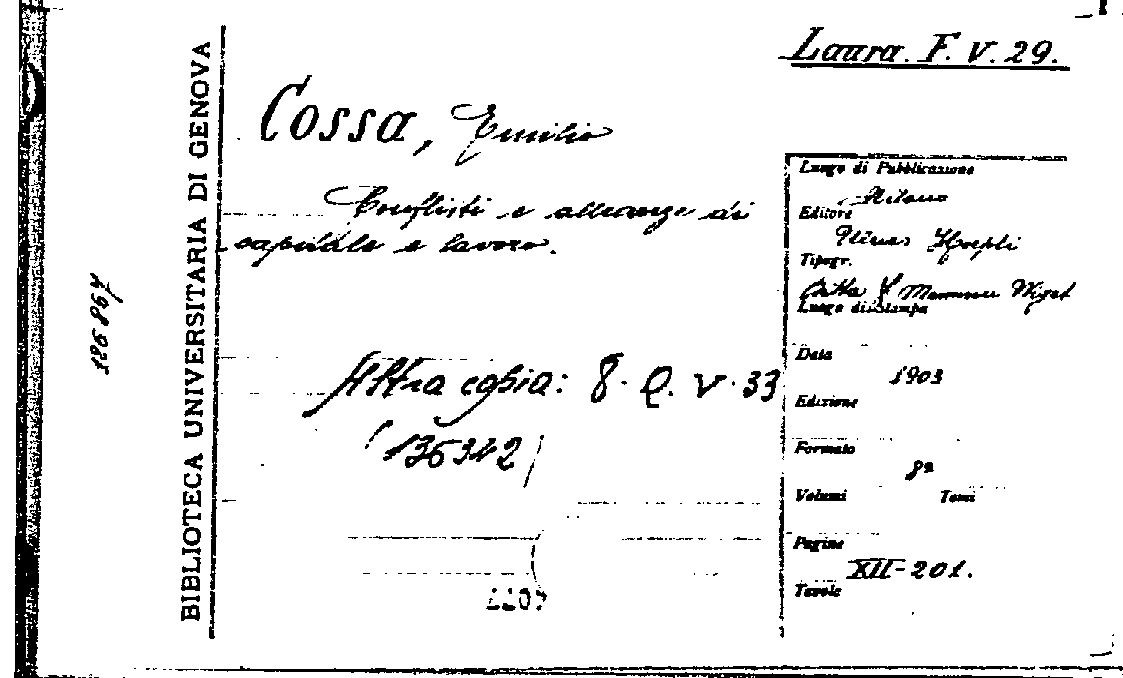 Laura. F. V. 29.
Cossa, Emilio
Conflitti e alleanze di
capitale e lavoro.
Altra copia: 8. Q. V. 33
(136342)
BIBLIOTECA UNIVERSITARIA DI GENOVA
Luogo di Pubblicazione
Milano
Editore
Ulrico Hoepli
Tipogr.
Luogo di Stampa
Data
1903
Edizione
Formato
8º
Volumi Tomi
Pagine
XII-201.
Tavole